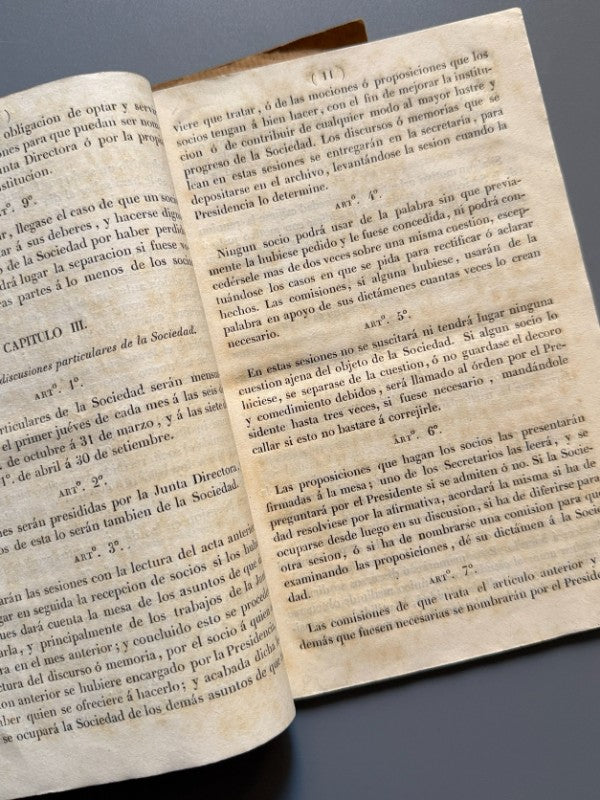 )
obligacion de optar y serv
ones para que puedan ser nom
unta Directora ó por la propi
stitucion.
ARTº. 9º.
ar, llegase el caso de que un soci
tar á sus deberes, y hacerse dign
o de la Sociedad por haber perdid
drá lugar la separacion si fuese v
ras partes á lo menos de los socio
CAPITULO III.
discusiones particulares de la Sociedad.
ARTº. 1º.
articulares de la Sociedad serán mensu
el primer juéves de cada mes á las seis d
. de octubre á 31 de marzo, y á las siete
1º. de abril á 30 de setiembre.
ARTº. 2º.
nes serán presididas por la Junta Directora,
os de esta lo serán tambien de la Sociedad.
ARTº. 3º.
arán las sesiones con la lectura del acta anterio
gar en seguida la recepcion de socios si los hub
ues dará cuenta la mesa de los asuntos de que
arla, y principalmente de los trabajos de la Jun
ra en el mes anterior; y concluido esto se proced
ctura del discurso ó memoria, por el socio á quien
ion anterior se hubiere encargado por la Presidencia
aber quien se ofreciere á hacerlo; y acabada dicha
se ocupará la Sociedad de los demás asuntos de que
( 11 )
viere que tratar, ó de las mociones ó proposiciones que los
socios tengan á bien hacer, con el fin de mejorar la institu-
cion ó de contribuir de cualquier modo al mayor lustre y
progreso de la Sociedad. Los discursos ó memorias que se
lean en estas sesiones se entregarán en la secretaría, para
depositarse en el archivo, levantándose la sesion cuando la
Presidencia lo determine.
ARTº. 4º.
Ningun socio podrá usar de la palabra sin que previa-
mente la hubiese pedido y le fuese concedida, ni podrá con-
cedérsele mas de dos veces sobre una misma cuestion, escep-
tuándose los casos en que se pida para rectificar ó aclarar
hechos. Las comisiones, si alguna hubiese, usarán de la
palabra en apoyo de sus dictámenes cuantas veces lo crean
necesario.
ARTº. 5º.
En estas sesiones no se suscitará ni tendrá lugar ninguna
cuestion ajena del objeto de la Sociedad. Si algun socio lo
hiciese, se separase de la cuestion, ó no guardase el decoro
y comedimiento debidos, será llamado al órden por el Pre-
sidente hasta tres veces, si fuese necesario, mandándole
callar si esto no bastare á correjirle.
ARTº. 6º.
Las proposiciones que hagan los socios las presentarán
firmadas á la mesa; uno de los Secretarios las leerá, y se
preguntará por el Presidente si se admiten ó no. Si la Socie-
dad resolviese por la afirmativa, acordará la misma si ha de
ocuparse desde luego en su discusion, si ha de diferirse para
otra sesion, ó si ha de nombrarse una comision para que
examinando las proposiciones, dé su dictámen á la Socie
dad.
ARTº. 7º.
Las comisiones de que trata el artículo anterior y
demás que fuesen necesarias se nombrarán por el Preside